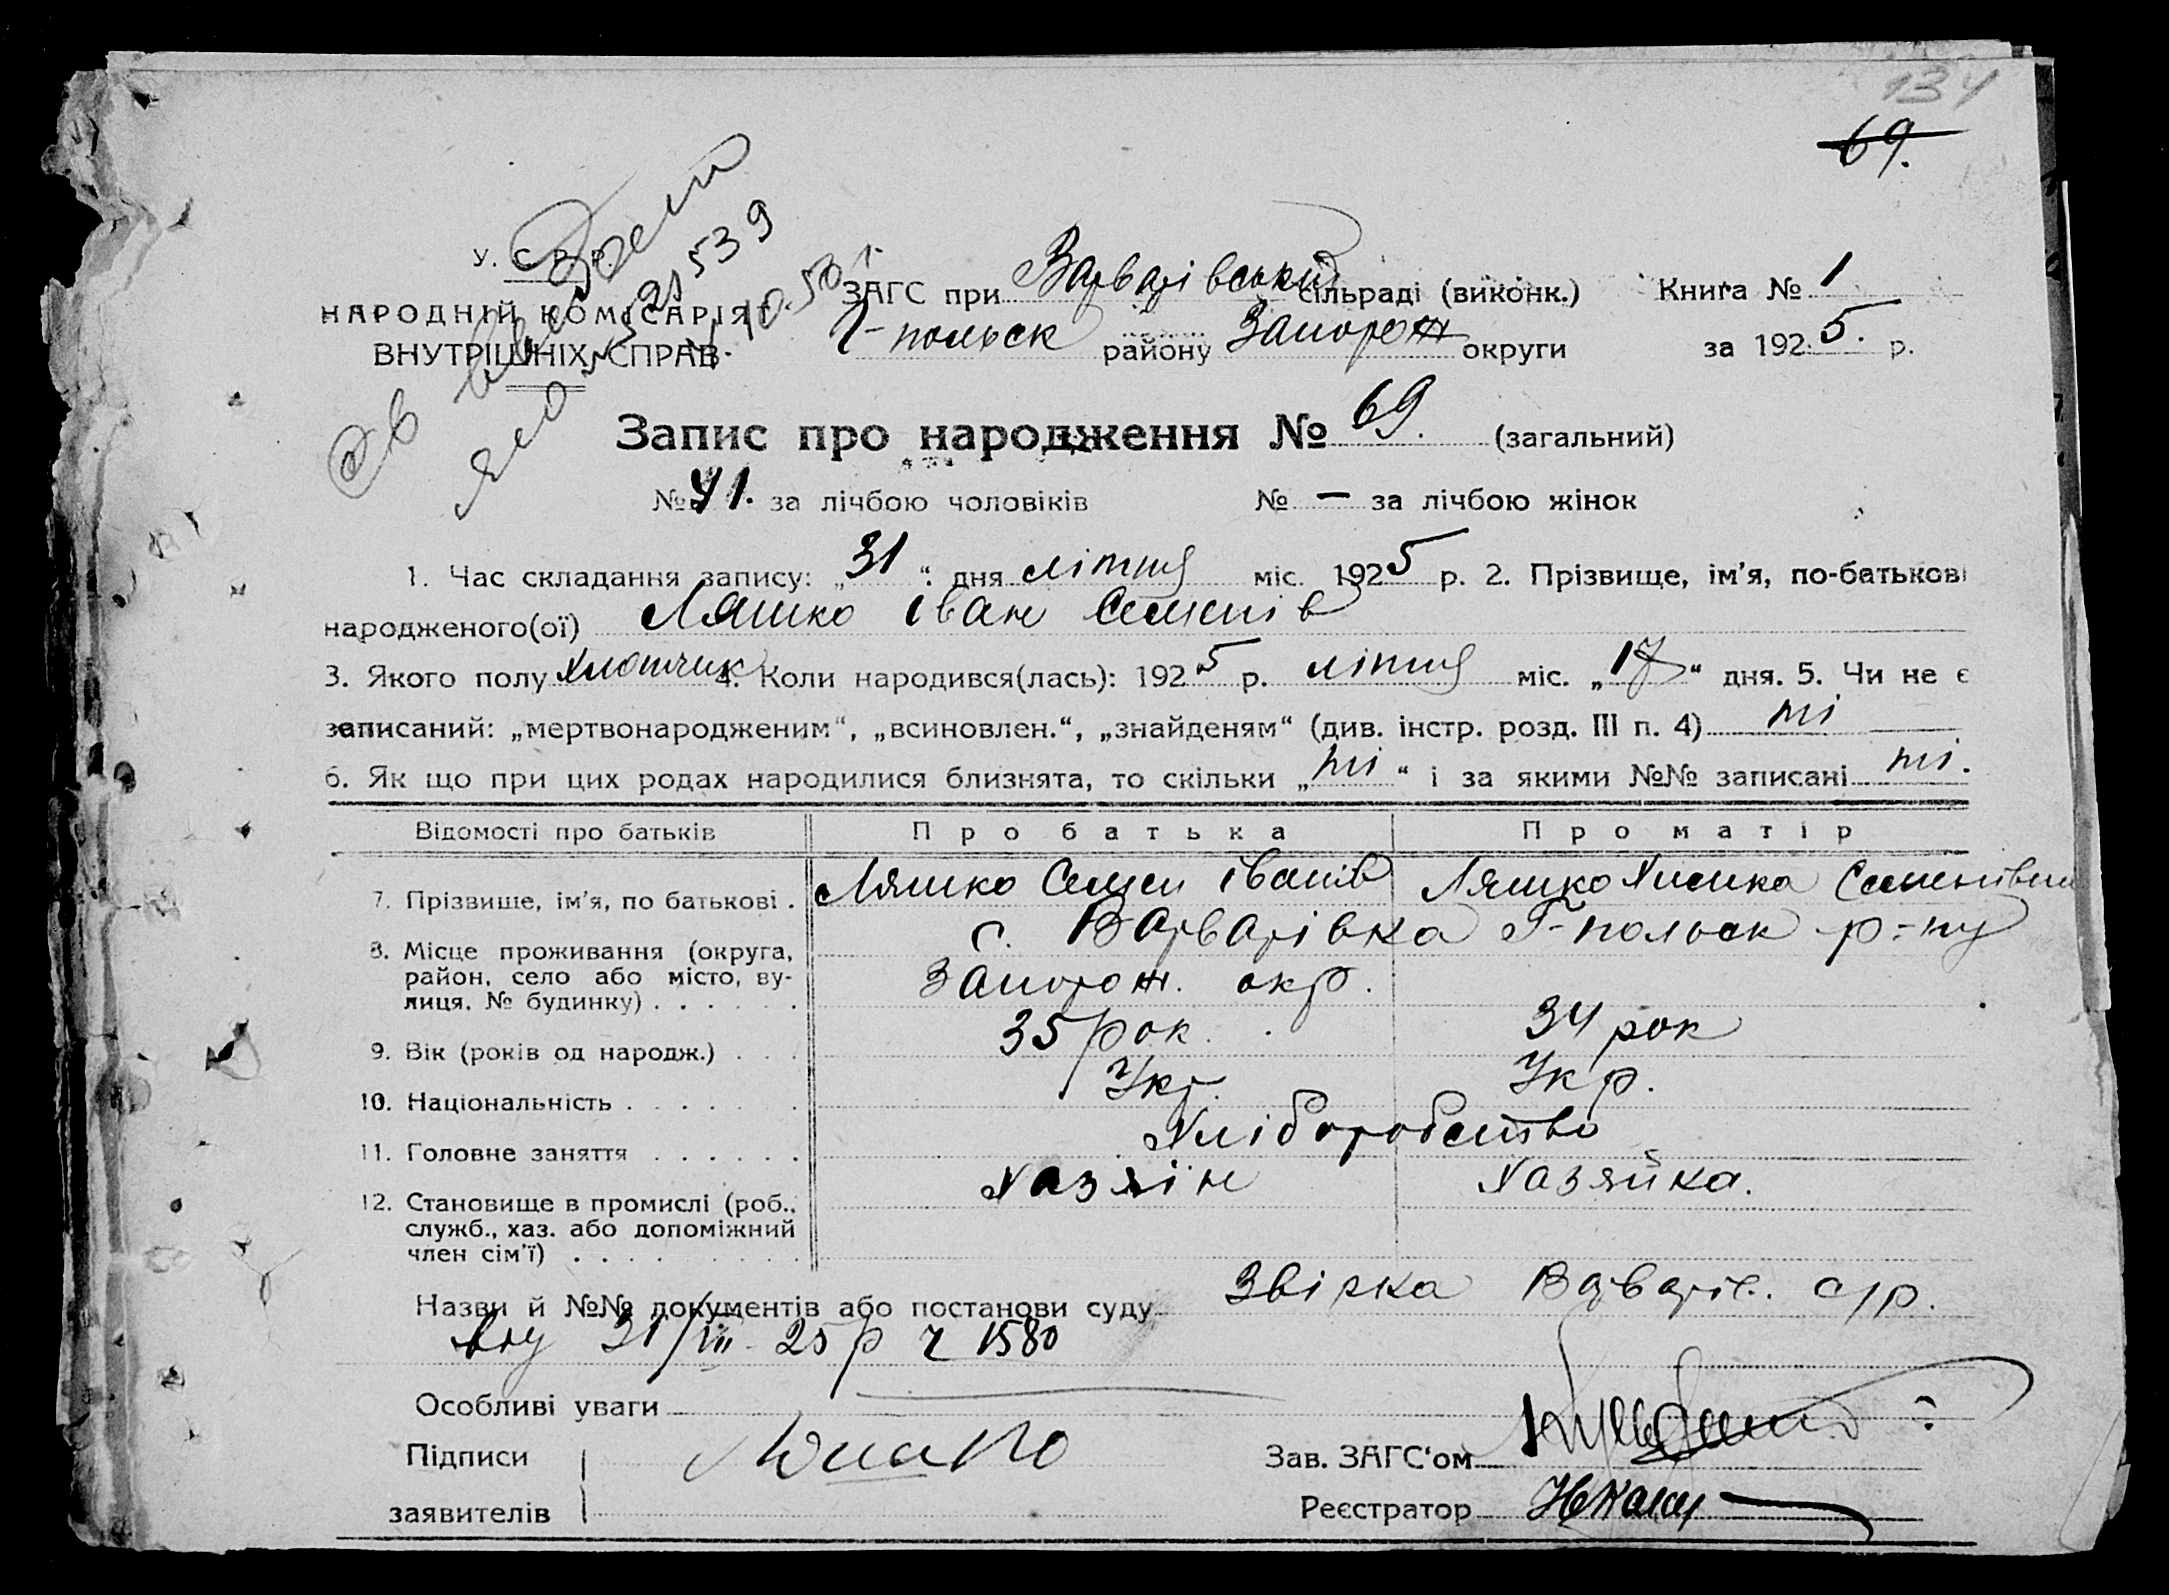 134
69.
У. С. Р. Р.
НАРОДНІЙ КОМІСАРІЯТ
ВНУТРІШНІХ СПРАВ
ЗАГС при Варварівський сільраді (виконк.) Книга № 1
Г-польск району Запорож округи за 1925. р.
Запис про народження № 69. (загальний)
№ 41. за лічбою чоловіків № — за лічбою жінок
1. Час складання запису: „31“ дня літня міс. 1925 р. 2. Прізвище, ім'я, по-батькові
народженого(ої) Ляшко Іван Семенів
3. Якого полу хлопчик 4. Коли народився(лась): 1925 р. літня міс. „17“ дня. 5. Чи не є
записаний: „мертвонародженим“, „всиновлен.“, „знайденям“ (див. інстр. розд. III п. 4) ні
6. Як що при цих родах народилися близнята, то скільки „ні“ і за якими №№ записані ні.
Відомості про батьків Про батька Про матір
7. Прізвище, ім'я, по батькові . Ляшко Семен Іванів Ляшко Семенівна
8. Місце проживання (округа, район, село або місто, вулиця, № будинку) . . . . . . с. Варварівка Г-польск р-ну
Запорож. окр.
9. Вік (років од народж.) . . . 35 рок. 34 рок
10. Національність . . . . . . . Укр. Укр.
11. Головне заняття . . . . . . Хліборобство
12. Становище в промислі (роб., служб., хаз. або допоміжний член сім'ї) . . . . . . . . . Хазяїн Хазяйка.
Назви й №№ документів або постанови суду Варварів. с/р.
31/VII-25 р ч 1580
Особливі уваги
Підписи
заявителів
Ляшко
Зав. ЗАГС'ом
Реєстратор